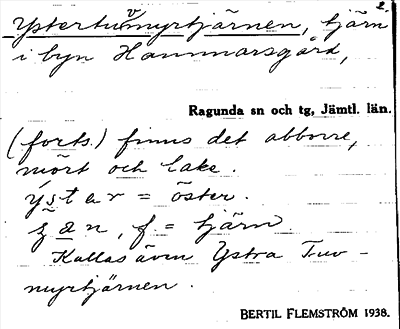 2.
Ystertuvmyrtjärnen, tjärn
i byn Hammarsgård,
Ragunda sn och tg, Jämtl. län.
(forts.) finns det abborre,
mört och lake.
ýs̲tar = öster.
z̲a̲n, f. = tjärn
Kallas även Ystra Tuv-
myrtjärnen.
BERTIL FLEMSTRÖM 1938.